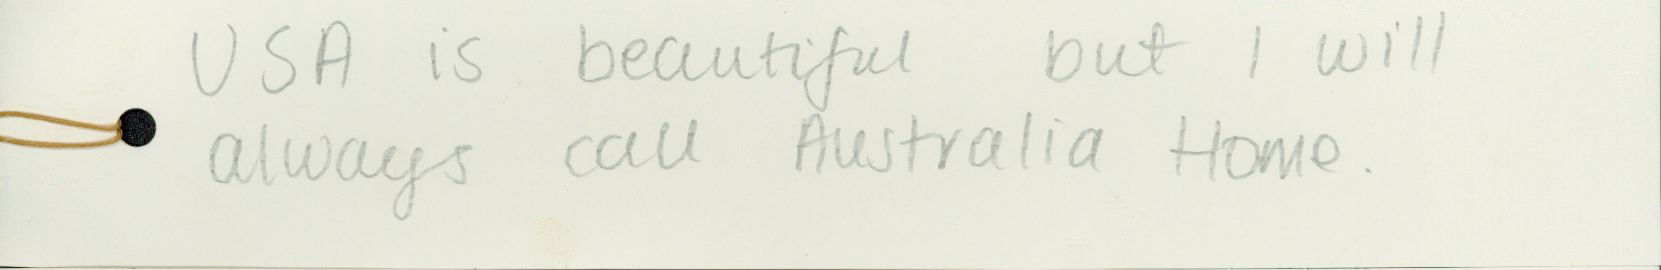 USA is beautiful but I will
always call Australia Home.